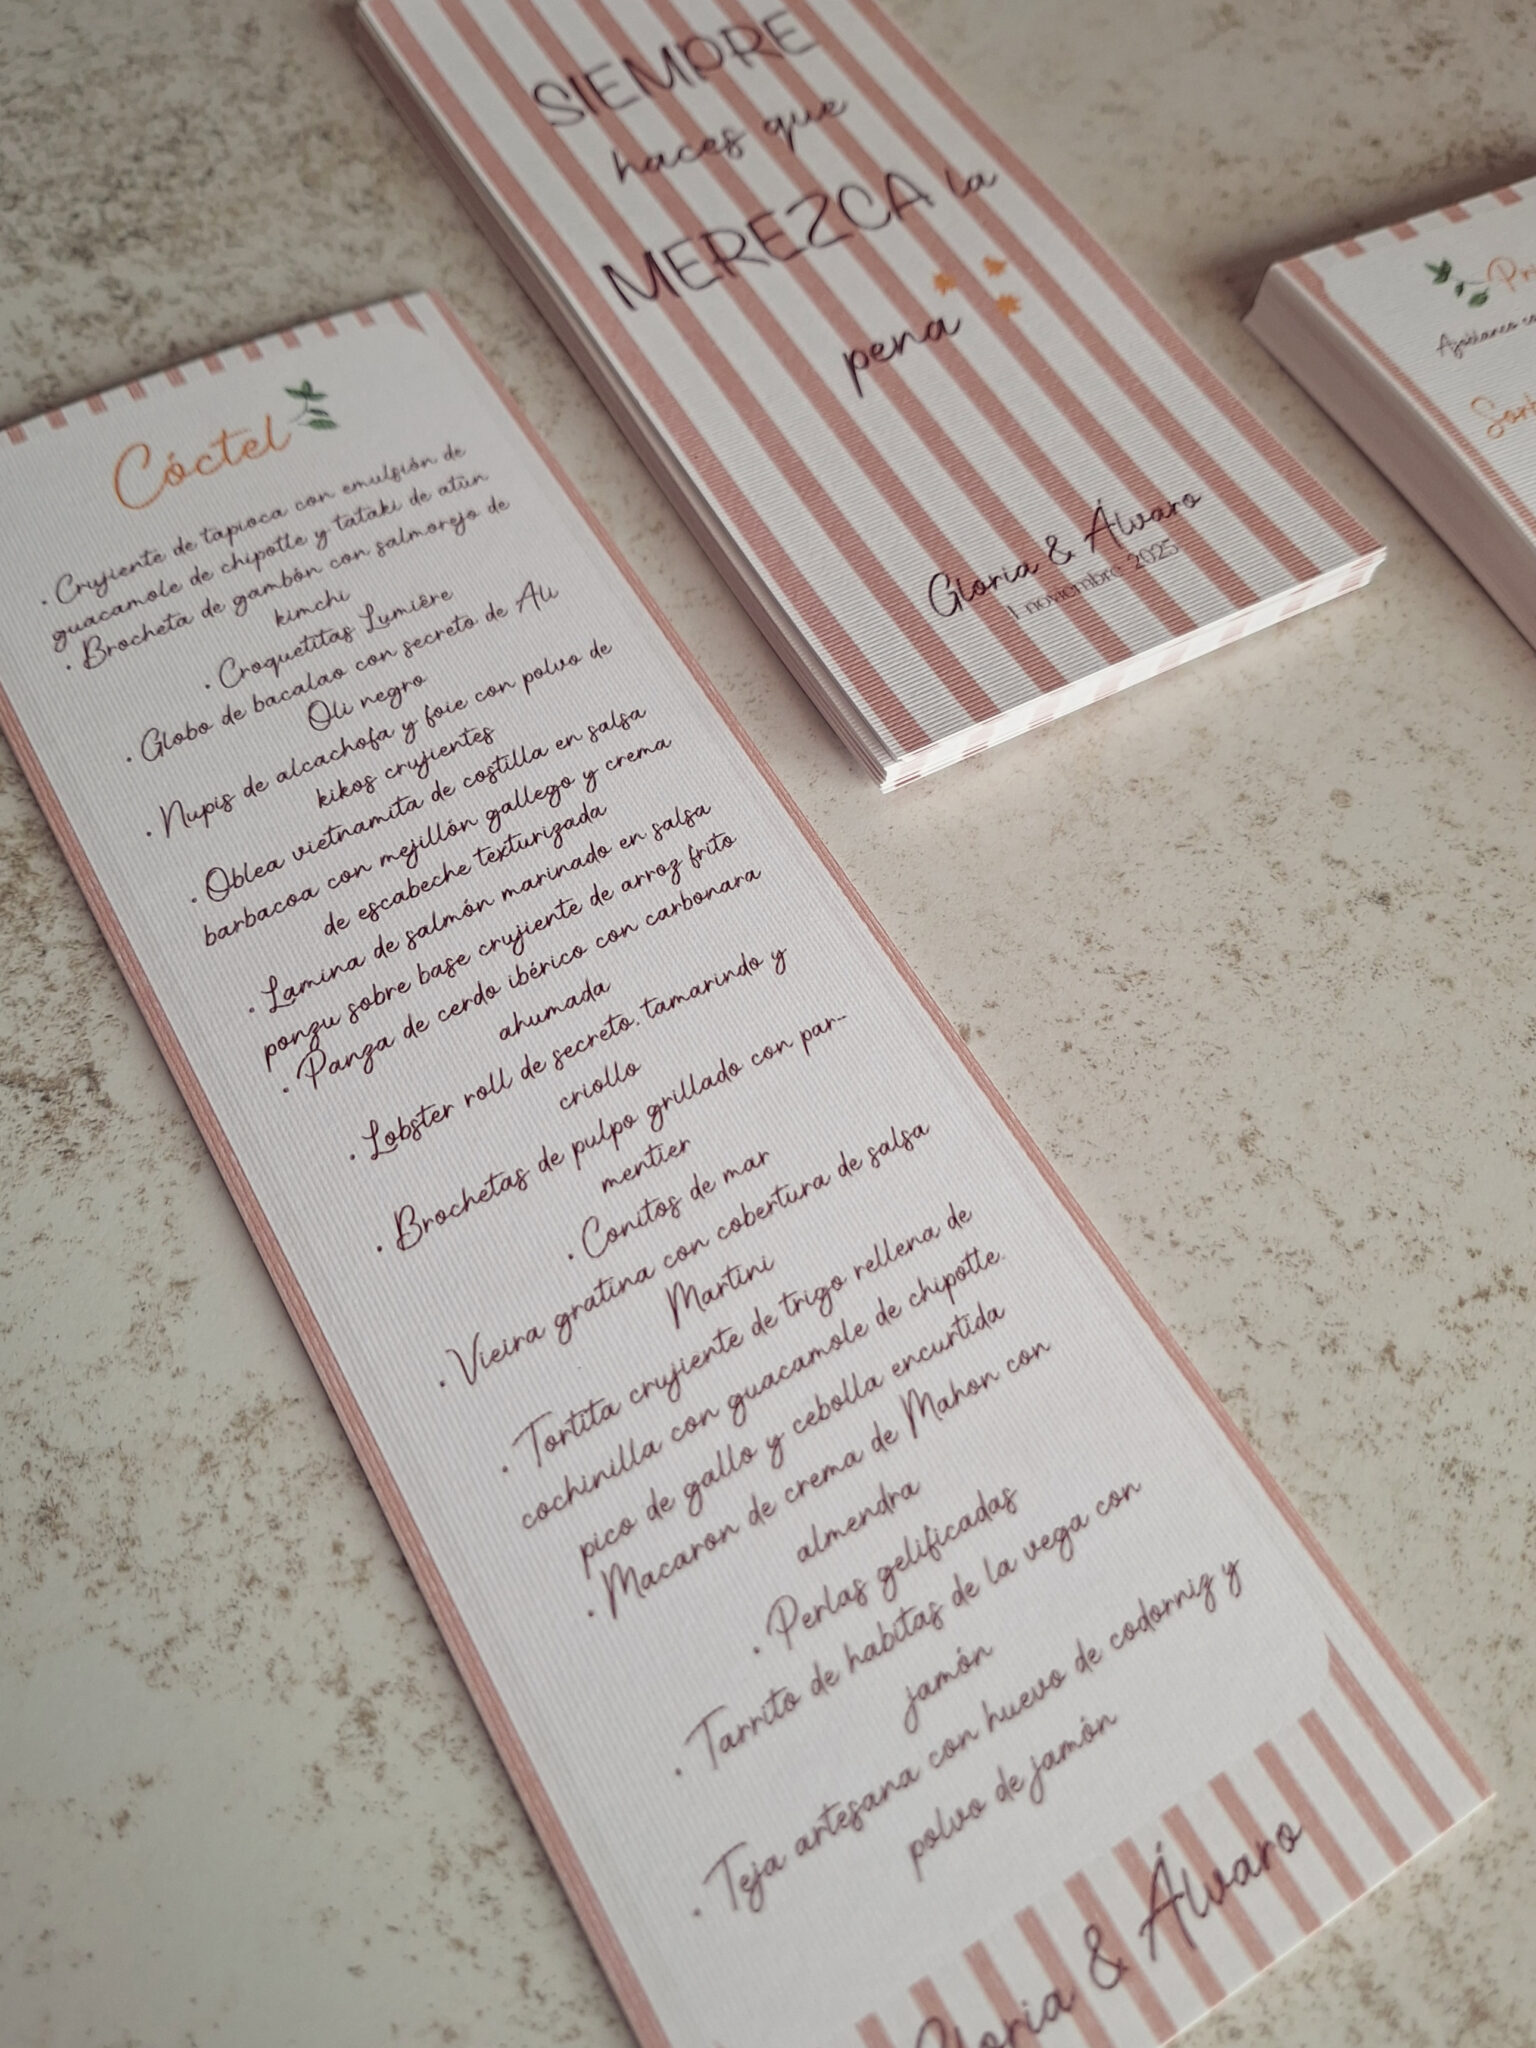 SIEMPRE
haces que
MEREZCA la
pena
Gloria & Álvaro
1 noviembre 2025
Cóctel
· Crujiente de tapioca con emulsión de
guacamole de chipotle y tataki de atún
· Brocheta de gambón con salmorejo de
kimchi
· Croquetitas Lumière
· Globo de bacalao con secreto de Ali
Oli negro
· Nupis de alcachofa y foie con polvo de
kikos crujientes
· Oblea vietnamita de costilla en salsa
barbacoa con mejillón gallego y crema
de escabeche texturizada
· Lamina de salmón marinado en salsa
ponzu sobre base crujiente de arroz frito
· Panza de cerdo ibérico con carbonara
ahumada
· Lobster roll de secreto, tamarindo y
criollo
· Brochetas de pulpo grillado con par-
mentier
· Conitos de mar
· Vieira gratina con cobertura de salsa
Martini
· Tortita crujiente de trigo rellena de
cochinilla con guacamole de chipotle,
pico de gallo y cebolla encurtida
· Macaron de crema de Mahon con
almendra
· Perlas gelificadas
· Tarrito de habitas de la vega con
jamón
· Teja artesana con huevo de codorniz y
polvo de jamón
Gloria & Álvaro